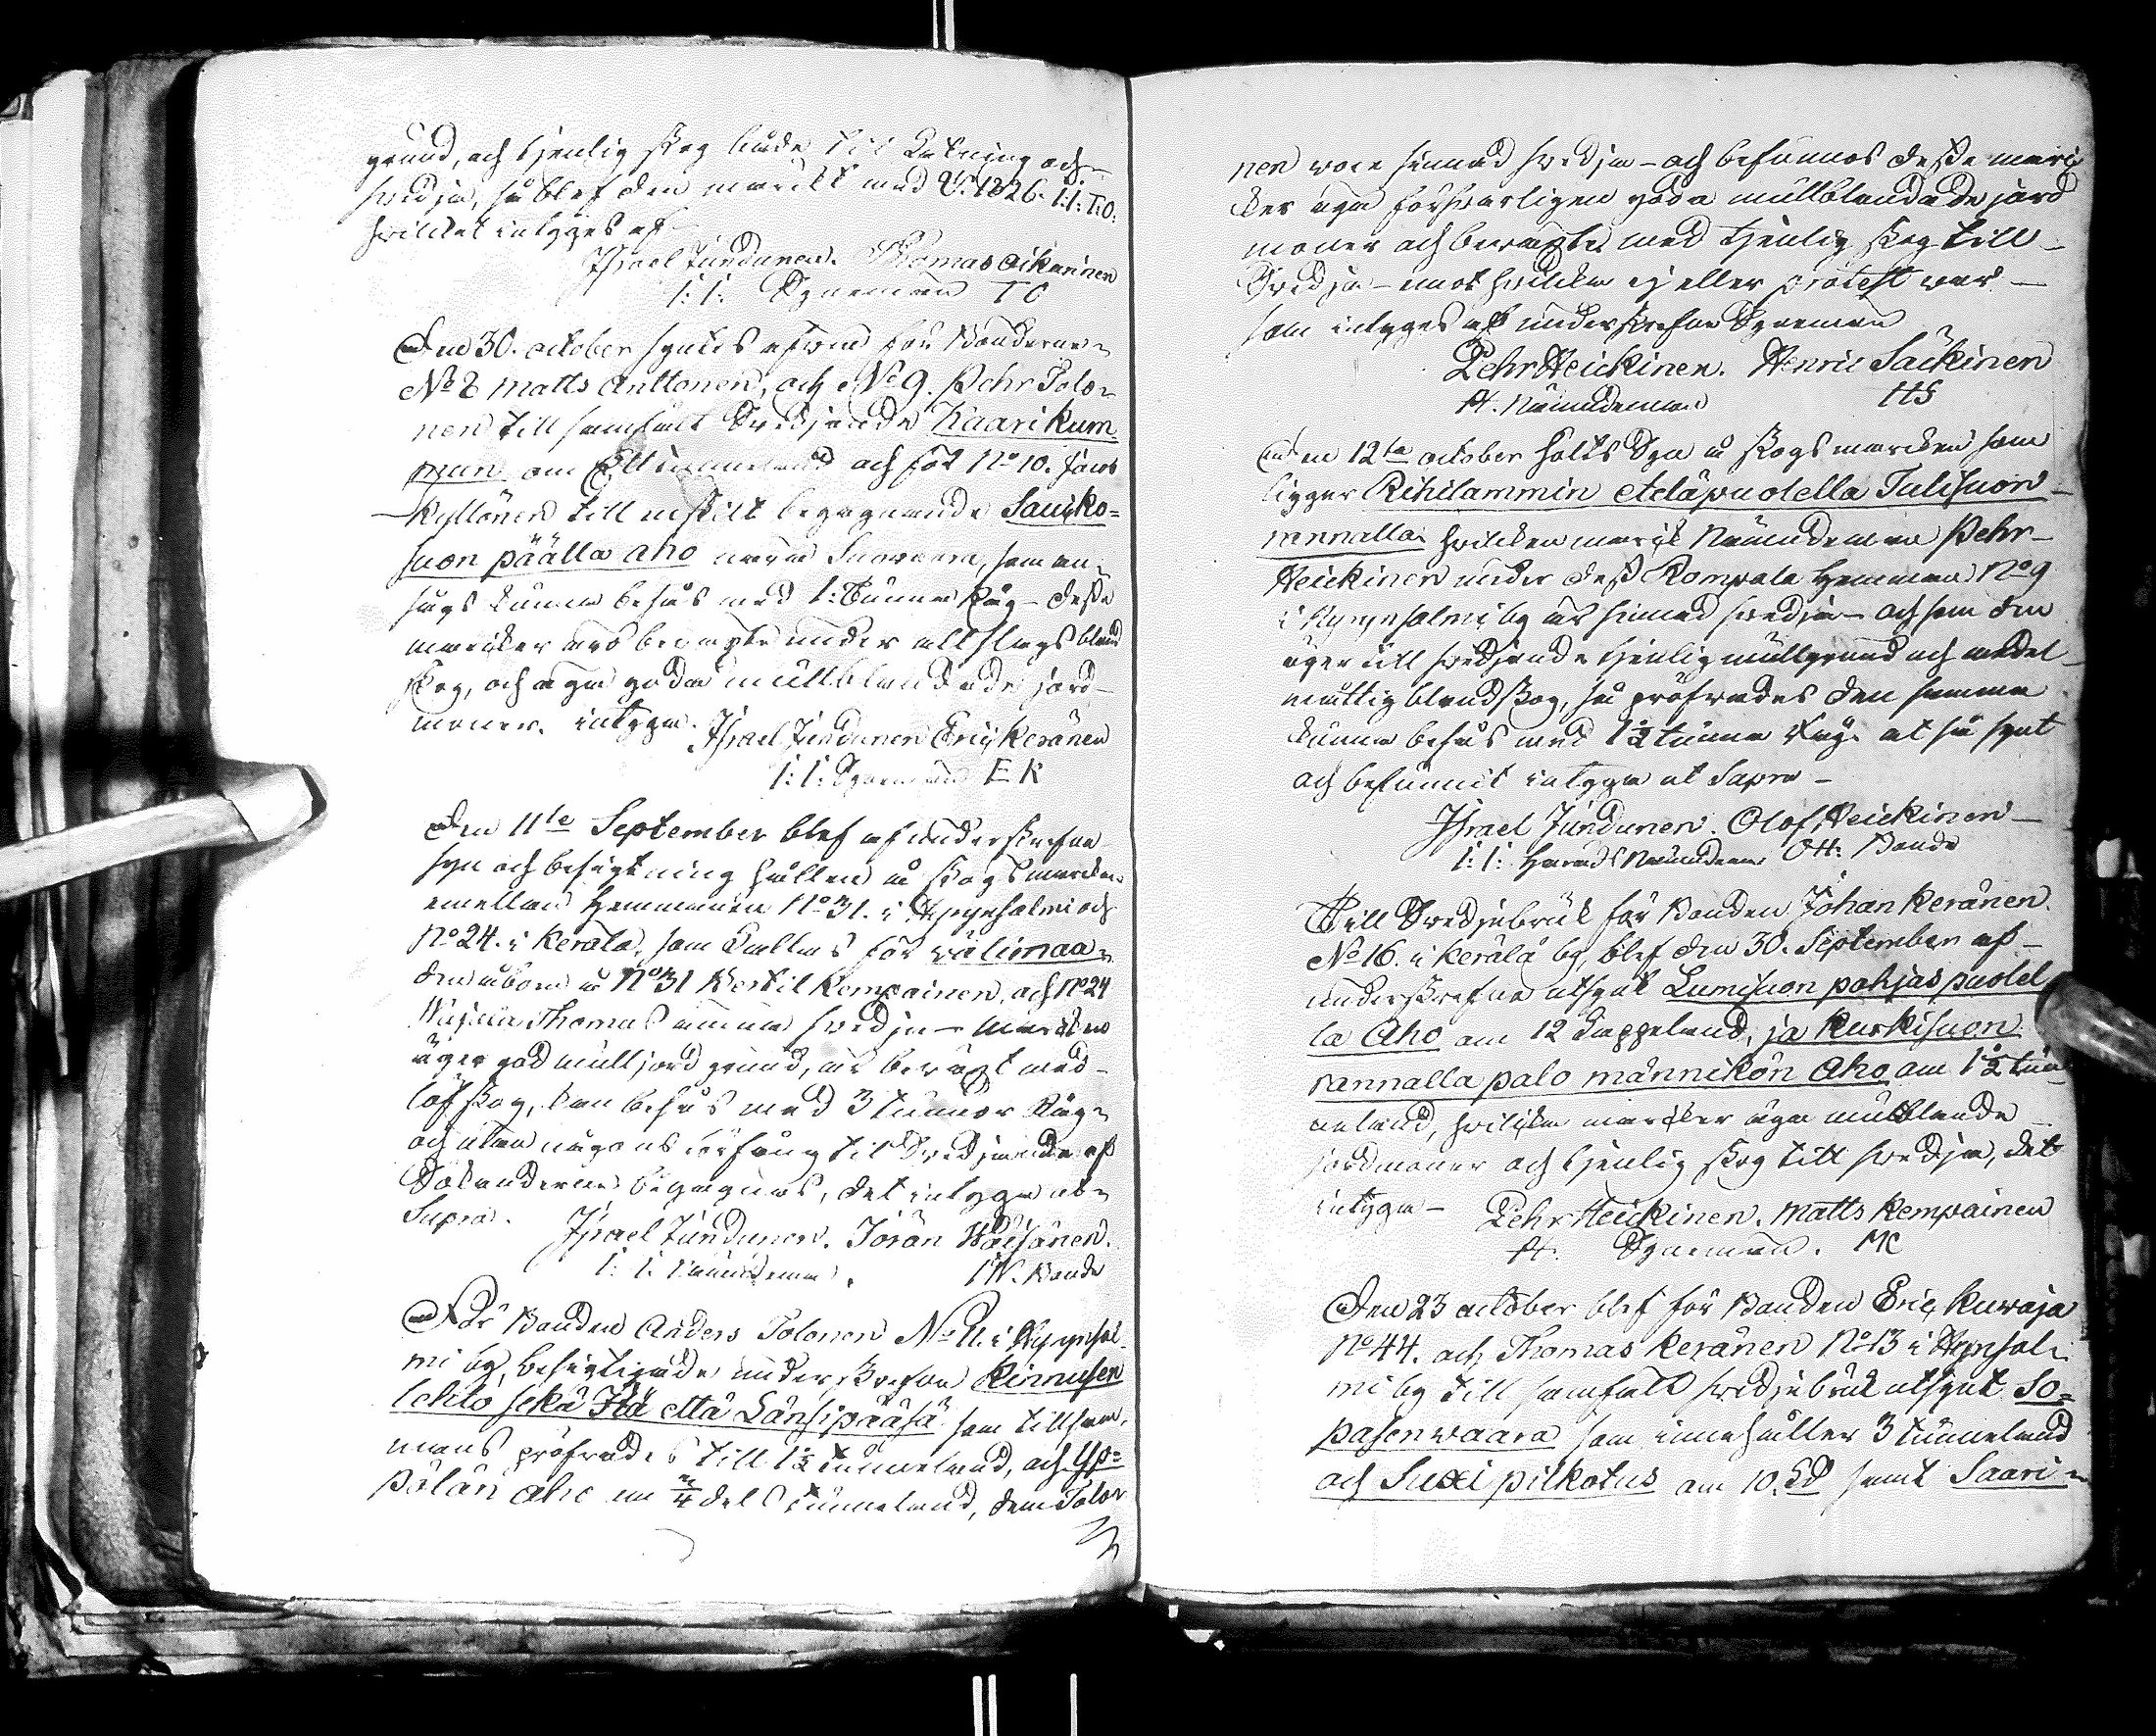 grund, och tjenlig skog både till Rökning och
svedja, så blef den märckt med Å: 1826. I:I: T:O:
hvilcket intygges af
Israel Jundunen. Thomas Oikarinen
I: I: Synemän TO
Den 30. october syntes äfven för Bönderne
No 8 Matts Anttonen, och No 9. Pehr Tolo-
nen till samfält Svedjande Kaarikum-
mun om Ett tunneland och för No 10. Jacob
Kyllönen till enskilt begagnande Sauiko-
suon päällä aho som an-
sågs kunna besås med 1: Tunna Råg - desse
marcker äro beväxte under allslags bland
skog, och äga goda mullblandade jord-
moner. intyga.
Israel Jundunen Eric Keränen
I: I: Synemän EK
Den 11te September blef af underskrefne
syn och besigtning hållen å skogsmarcken
emellan Hemmanen No 31. i Hyrynsalmi och
No 24. i Kerälä, som kallas för välimaa-
den åboen å No 31 Bertil Kempainen, och No 24
Thomas ämna svedja - Marcken
äger god mulljord grund, är beväxt med
löfskog, kan besås med 3 tunnor Råg
och utan någons förfång til Svedjande af
Sökanderne begagnas, det intyga ut
Supra.
Israel Jundunen. Jöran Wäisänen.
I: I. Nämndeman. IW. Bonde
För Bonden Anders Tolonen No 11. i Hyrynsal-
mi by, besigtigade underskrefne Rimusen
lehto sekä Itä että Länsipääsä som tillsam-
mans pröfvades till 1½ tunneland, och Yp-
pölän aho om ¾ dels tunneland, dem Tolo-
nen vore sinnad svedja - och befunnos desse marc-
ker äga försvarligen goda mullblandade jord
moner och beväxte med tjenlig skog till
Svedja - emot hvilcka ej eller protest var -
som intyges af underskrefne Synemän
Pehr Heickinen. Henric Säckinen
PH. Nämndeman HS
Den 12te october hölts Syn å skogsmarcken som
ligger Riihilammin eteläpuolella Tulisuon
rannalla hvilcken marck Nämndeman Pehr
Heickinen under dess Rompala Hemman No 9
i Hyrynsalmi by är sinnad svedja - och som den
äger till svedjande tjenlig mullgrund och medel-
måttig blandskog, så pröfvades den samma
kunna besås med 1½ tunna Råg. at så synt
och befunnit intyga ut Supra -
Israel Jundunen. Olof Heickinen
I: I: Härads Nämndeman OH: Bonde
Till Svedjebruk för Bonden Johan Keränen
No 16. i Kerälä by, blef den 30. September af
underskrefne utsynt Lumisuon pohjas puolel
la Aho om 12 kappeland, ja Kurkisuon
rannalla palo männikön Aho om 1½ tun-
neland, hvilcka marcker äga mullblande
jordmoner och tjenlig skog till svedja, det
intyga - Pehr Heickinen. Matts Kempainen
PH. Synemän. MK
Den 23 october blef för Bonden Eric Kuvaja
No 44. och Thomas Keränen No 13 i Hyrynsal-
mi by till samfält svedjebruk utsynt So-
pasenvaara som innehåller 3 tunneland
och Suxi pilkotus om 10. samt Saari-